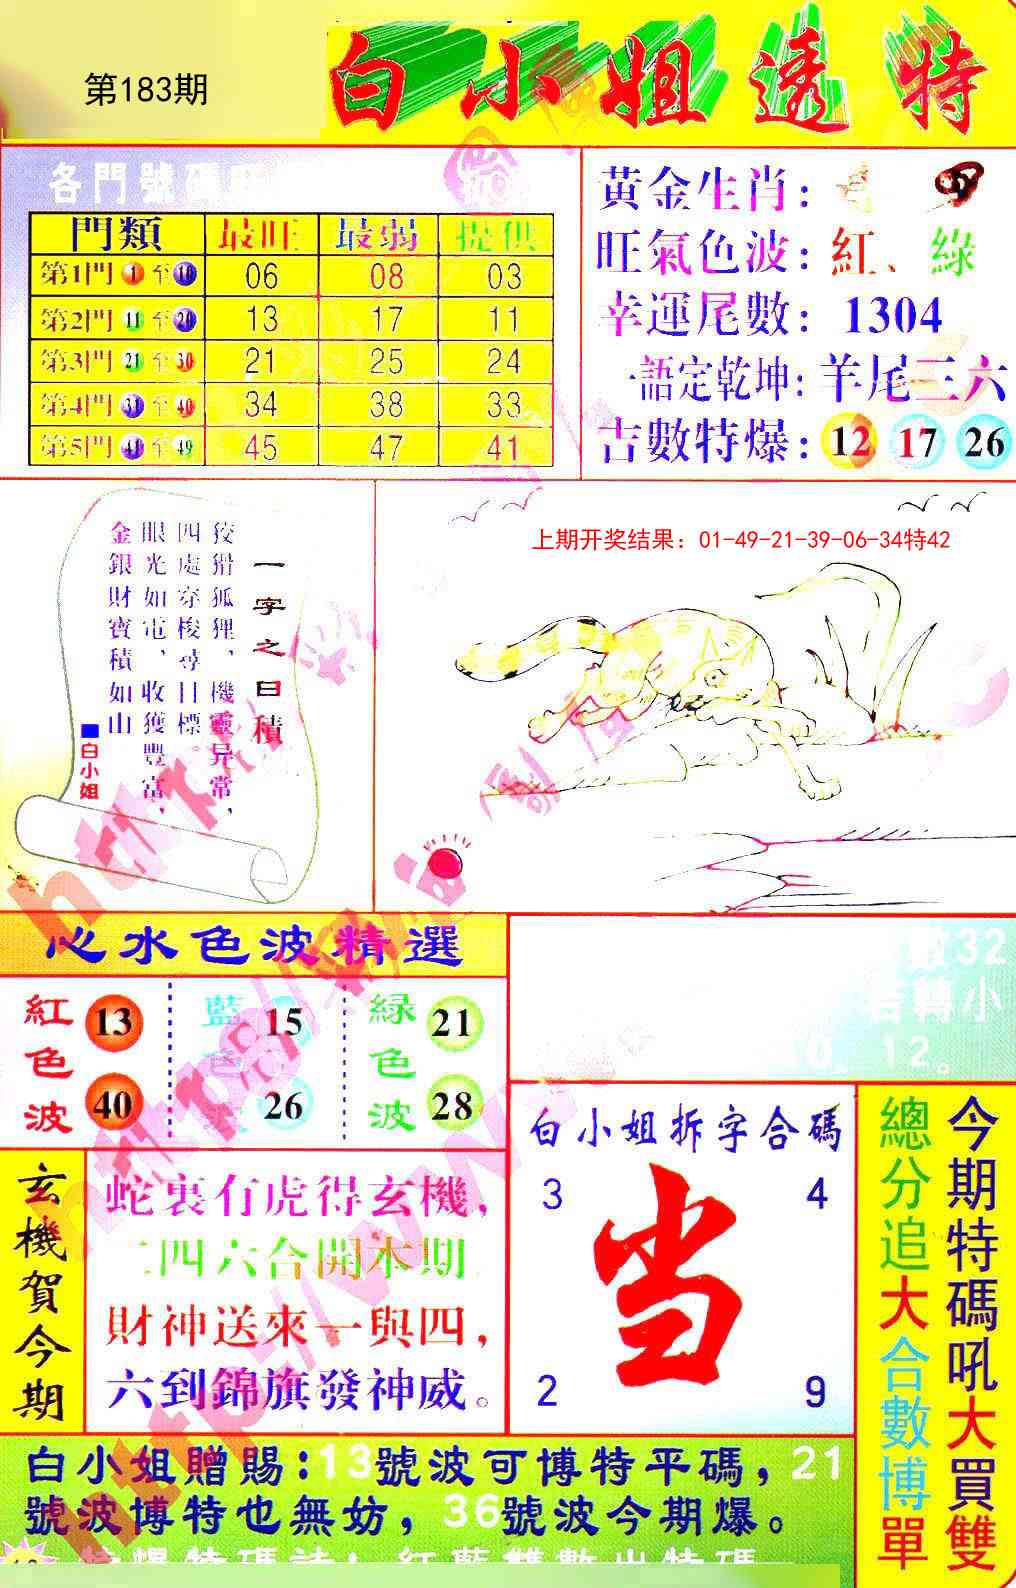 第183期
白小姐透特
各門號碼
門類 最旺 最弱 提供
第1門 1 至 10 06 08 03
第2門 11 至 20 13 17 11
第3門 21 至 30 21 25 24
第4門 31 至 40 34 38 33
第5門 41 至 49 45 47 41
黃金生肖：
旺氣色波：紅、綠
幸運尾數：1304
一語定乾坤：羊尾三六
吉數特爆：12 17 26
一字之曰積
狡猾狐狸，機靈异常，
四處穿梭尋目標。
眼光如電，收獲豐富，
金銀財寶積如山
■白小姐
上期开奖结果：01-49-21-39-06-34特42
心水色波精選
紅色波 13 40
藍色波 15 26
綠色波 21 28
數32
若轉小
10、12。
白小姐拆字合碼
3 4
当
2 9
今期特碼吼大買雙
總分追大合數博單
玄機賀今期
蛇裏有虎得玄機，
二四六合開本期
財神送來一與四，
六到錦旗發神威。
白小姐贈賜：13號波可博特平碼，21
號波博特也無妨，36號波今期爆。
特碼詩：紅藍雙數出特碼